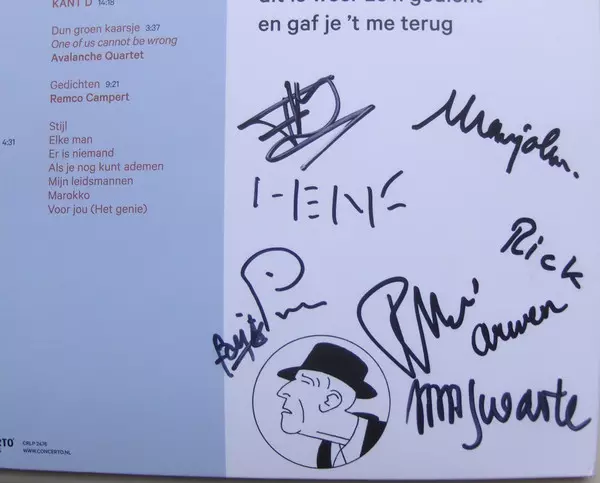 KANT D 14:18
Dun groen kaarsje 3:37
One of us cannot be wrong
Avalanche Quartet
Gedichten 9:21
Remco Campert
Stijl
4:31
Elke man
Er is niemand
Als je nog kunt ademen
Mijn leidsmannen
Marokko
Voor jou (Het genie)
CRLP 2678
WWW.CONCERTO.NL
en gaf je 't me terug
Marjolein
HENK
Rick
arwen
Swarte